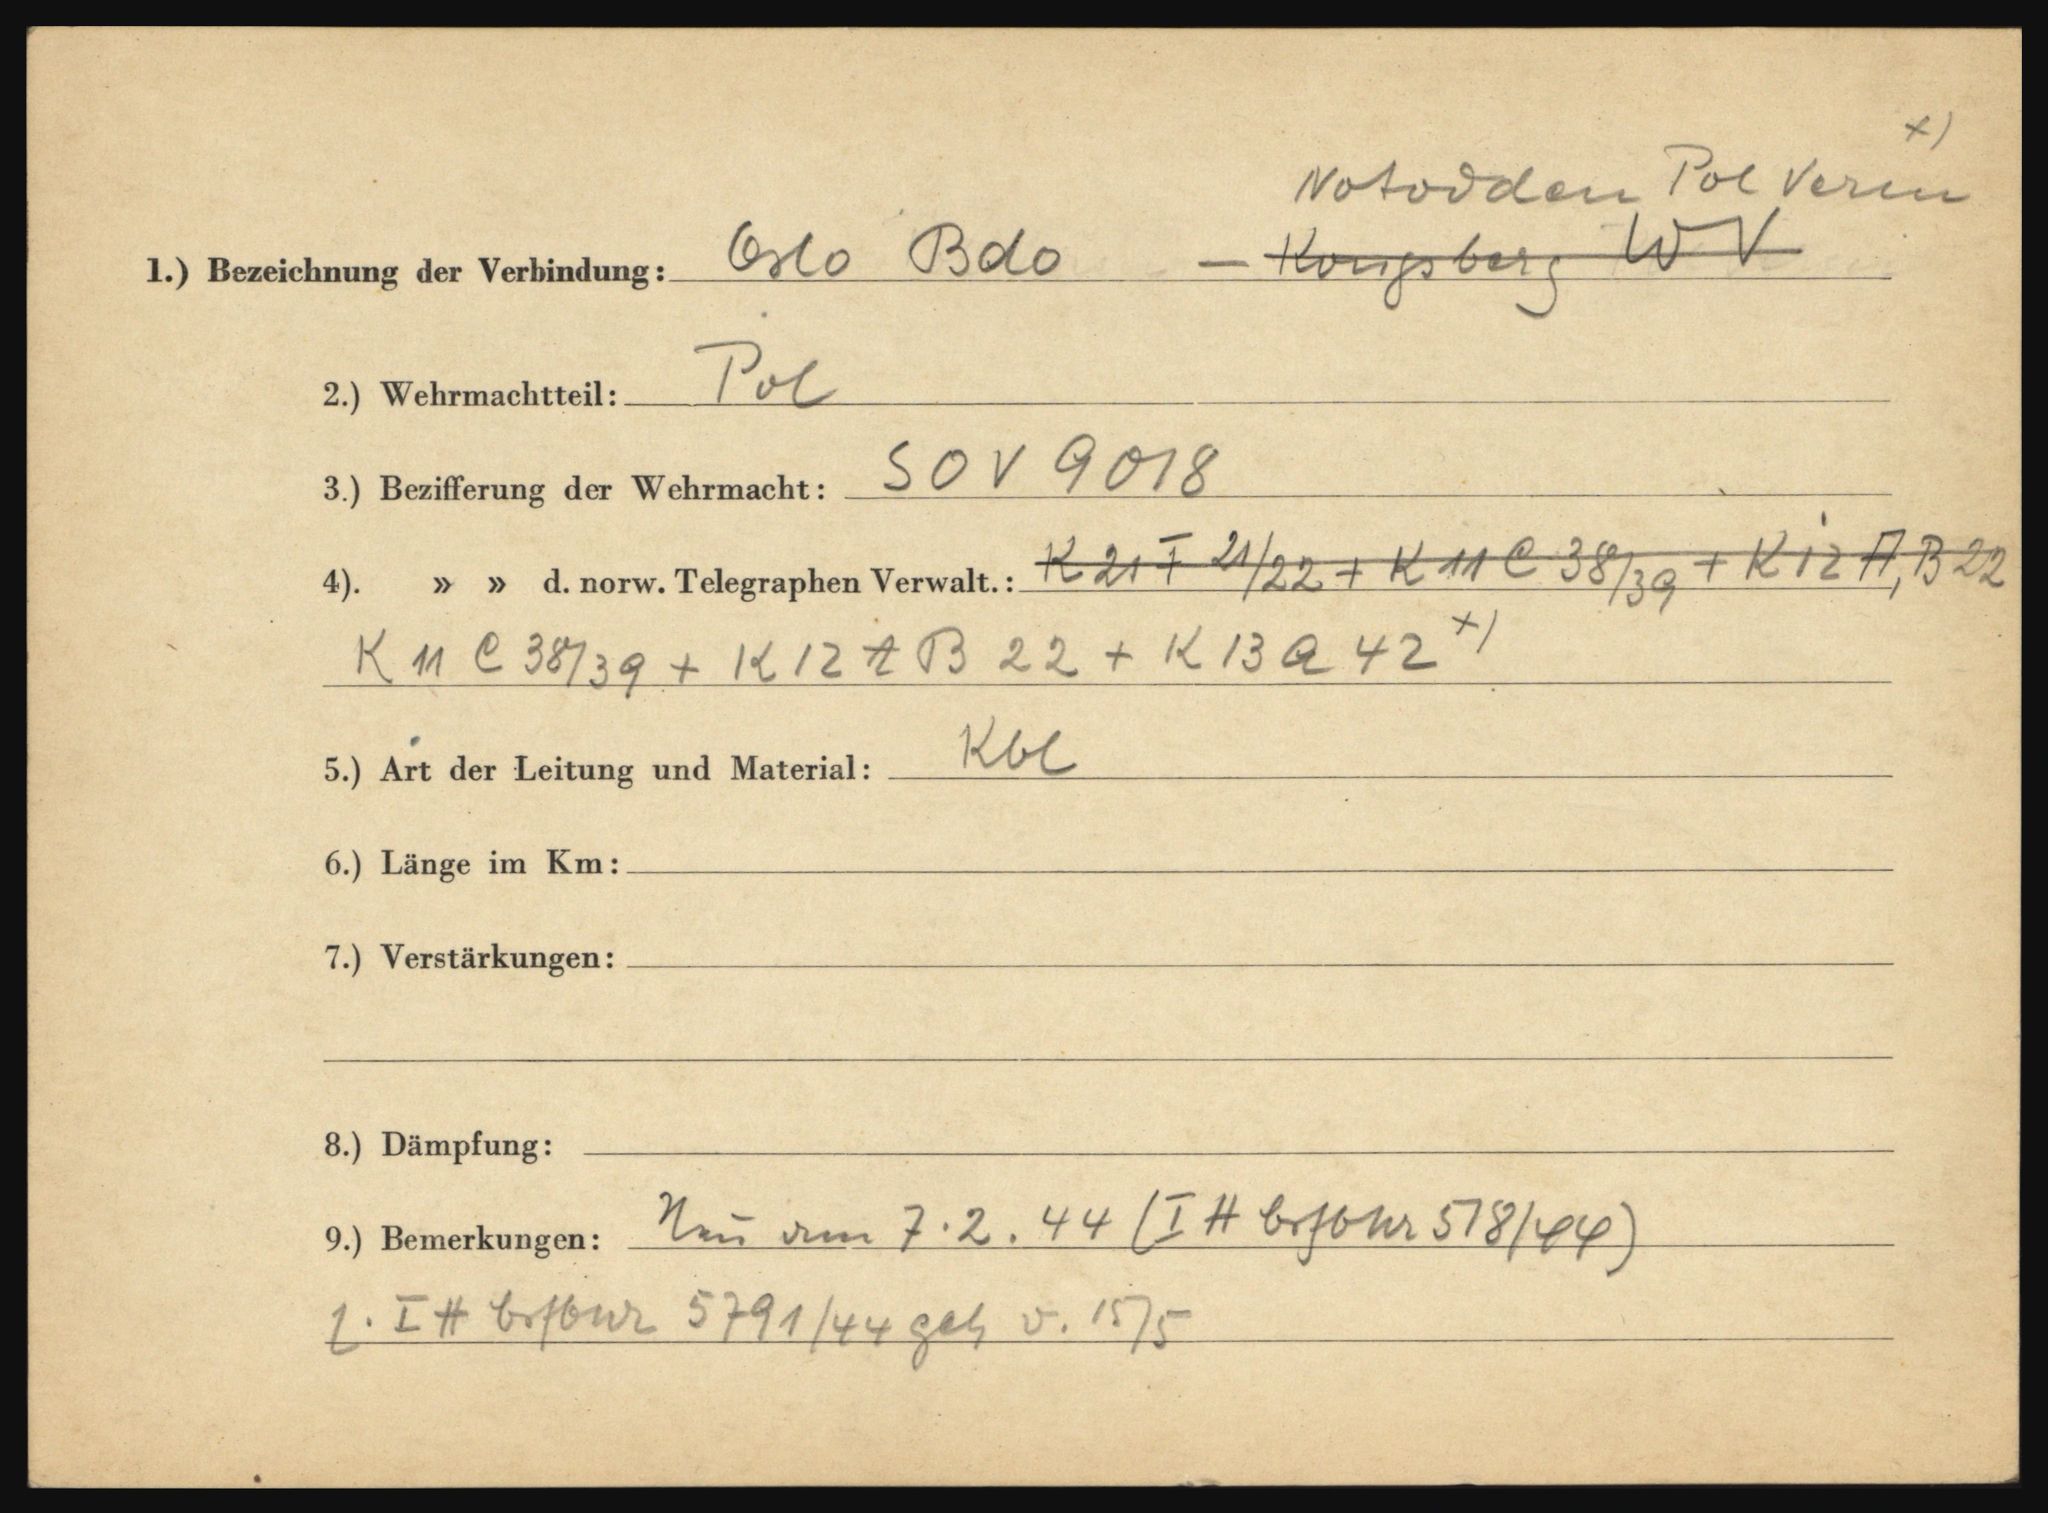 x)
Notodden Pol Verm
1.) Bezeichnung der Verbindung: Oslo Bdo — Kongsberg WV
2.) Wehrmachtteil: Pol
3.) Bezifferung der Wehrmacht: SOV 9018
4). » » d. norw. Telegraphen Verwalt.: K 21 F 21/22 + K 11 C 38/39 + K 12 A, B 22
K 11 C 38/39 + K 12 A B 22 + K 13 a 42 x)
5.) Art der Leitung und Material: Kbl
6.) Länge im Km:
7.) Verstärkungen:
8.) Dämpfung:
9.) Bemerkungen: Neu am 7.2.44 (I H 518/44)
I H 5791/44 geh v. 15/5